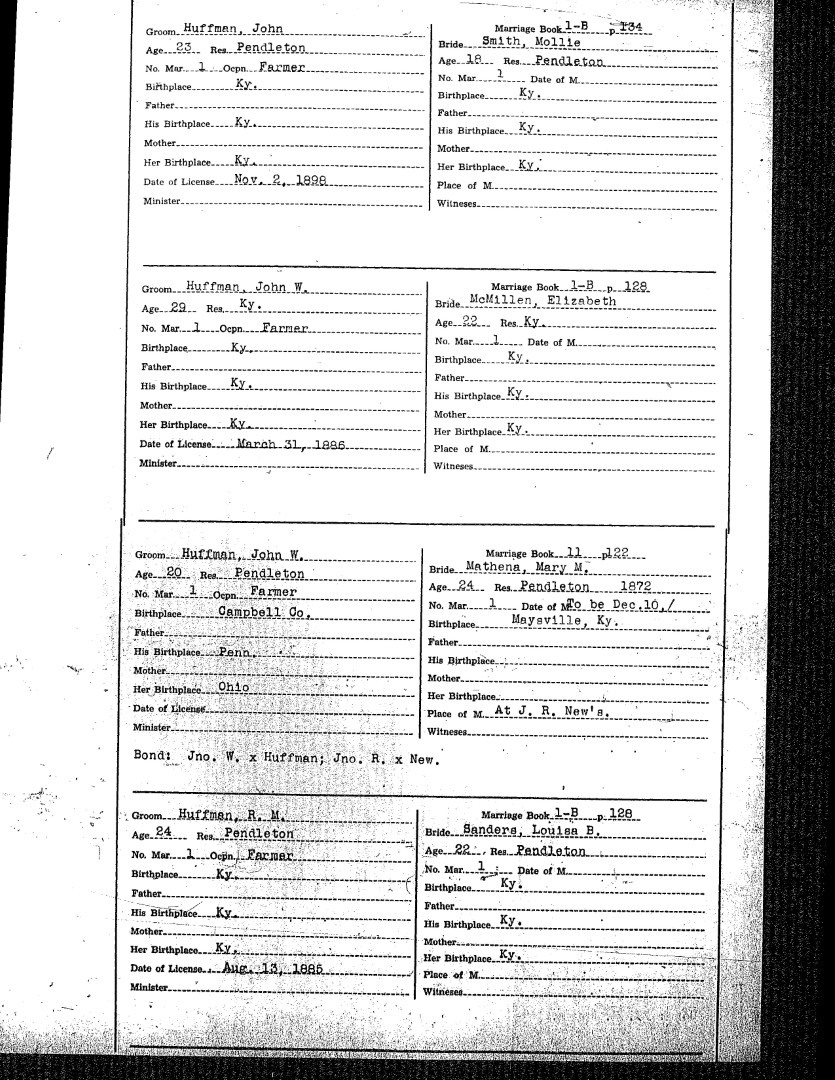 Groom Huffman, John
Age 23 Res. Pendleton
No. Mar. 1 Ocpn. Farmer
Birthplace Ky.
Father
His Birthplace Ky.
Mother
Her Birthplace Ky.
Date of License Nov. 2, 1898
Minister
Marriage Book 1-B p 134
Bride Smith, Mollie
Age 18 Res. Pendleton
No. Mar. 1 Date of M.
Birthplace Ky.
Father
His Birthplace Ky.
Mother
Her Birthplace Ky.
Place of M.
Witneses
Groom Huffman, John W.
Age 29 Res. Ky.
No. Mar. 1 Ocpn. Farmer
Birthplace Ky.
Father
His Birthplace Ky.
Mother
Her Birthplace Ky.
Date of License March 31, 1886
Minister
Marriage Book 1-B p. 128
Bride McMillen, Elizabeth
Age 22 Res. Ky.
No. Mar. 1 Date of M.
Birthplace Ky.
Father
His Birthplace Ky.
Mother
Her Birthplace Ky.
Place of M.
Witneses
Groom Huffman, John W.
Age 20 Res. Pendleton
No. Mar. 1 Ocpn. Farmer
Birthplace Campbell Co.
Father
His Birthplace Penn.
Mother
Her Birthplace Ohio
Date of License
Minister
Marriage Book 11 p122
Bride Mathena, Mary M.
Age 24 Res. Pendleton 1872
No. Mar. 1 Date of M To be Dec.10,/
Birthplace Maysville, Ky.
Father
His Birthplace
Mother
Her Birthplace
Place of M. At J. R. New's.
Witneses
Bond: Jno. W. x Huffman; Jno. R. x New.
Groom Huffman, R. M.
Age 24 Res. Pendleton
No. Mar. 1 Ocpn. Farmer
Birthplace Ky.
Father
His Birthplace Ky.
Mother
Her Birthplace Ky.
Date of License Aug. 13, 1885
Minister
Marriage Book 1-B p. 128
Bride Sanders, Louisa B.
Age 22 Res. Pendleton
No. Mar. 1 Date of M.
Birthplace Ky.
Father
His Birthplace Ky.
Mother
Her Birthplace Ky.
Place of M.
Witneses